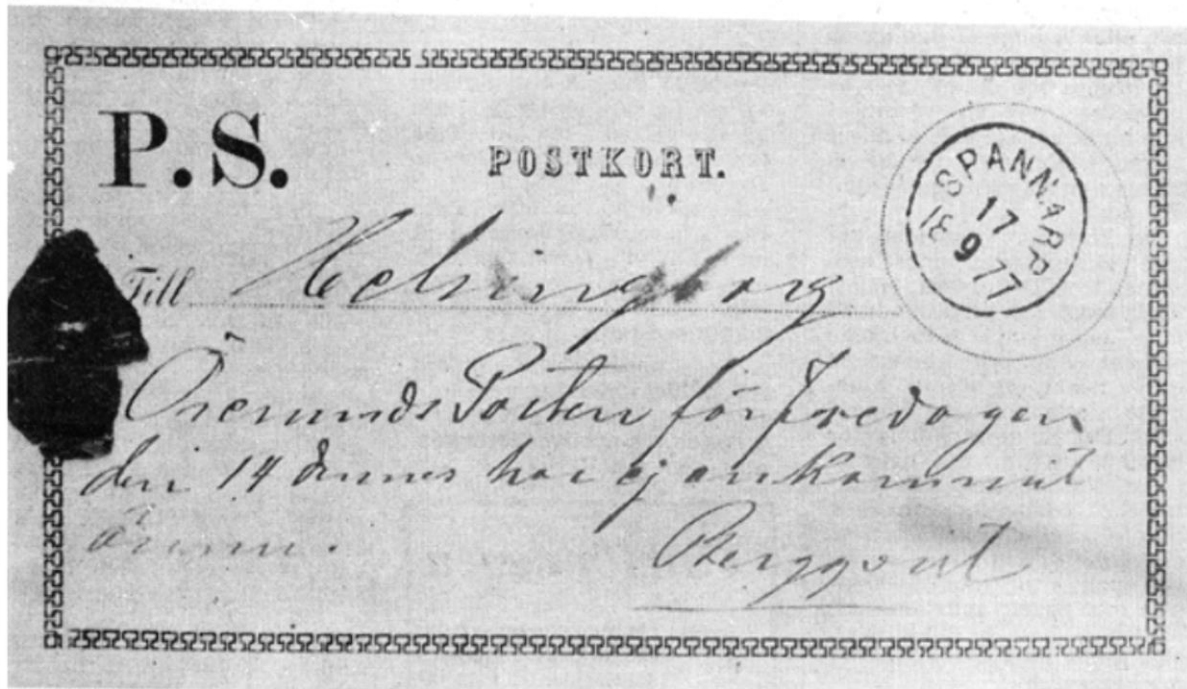 P.S.
POSTKORT.
SPANNARP
17
9
18 77
Till Helsingborg
Öresunds Posten för fredagen
den 14 dennes har ej ankommit
Berggvist